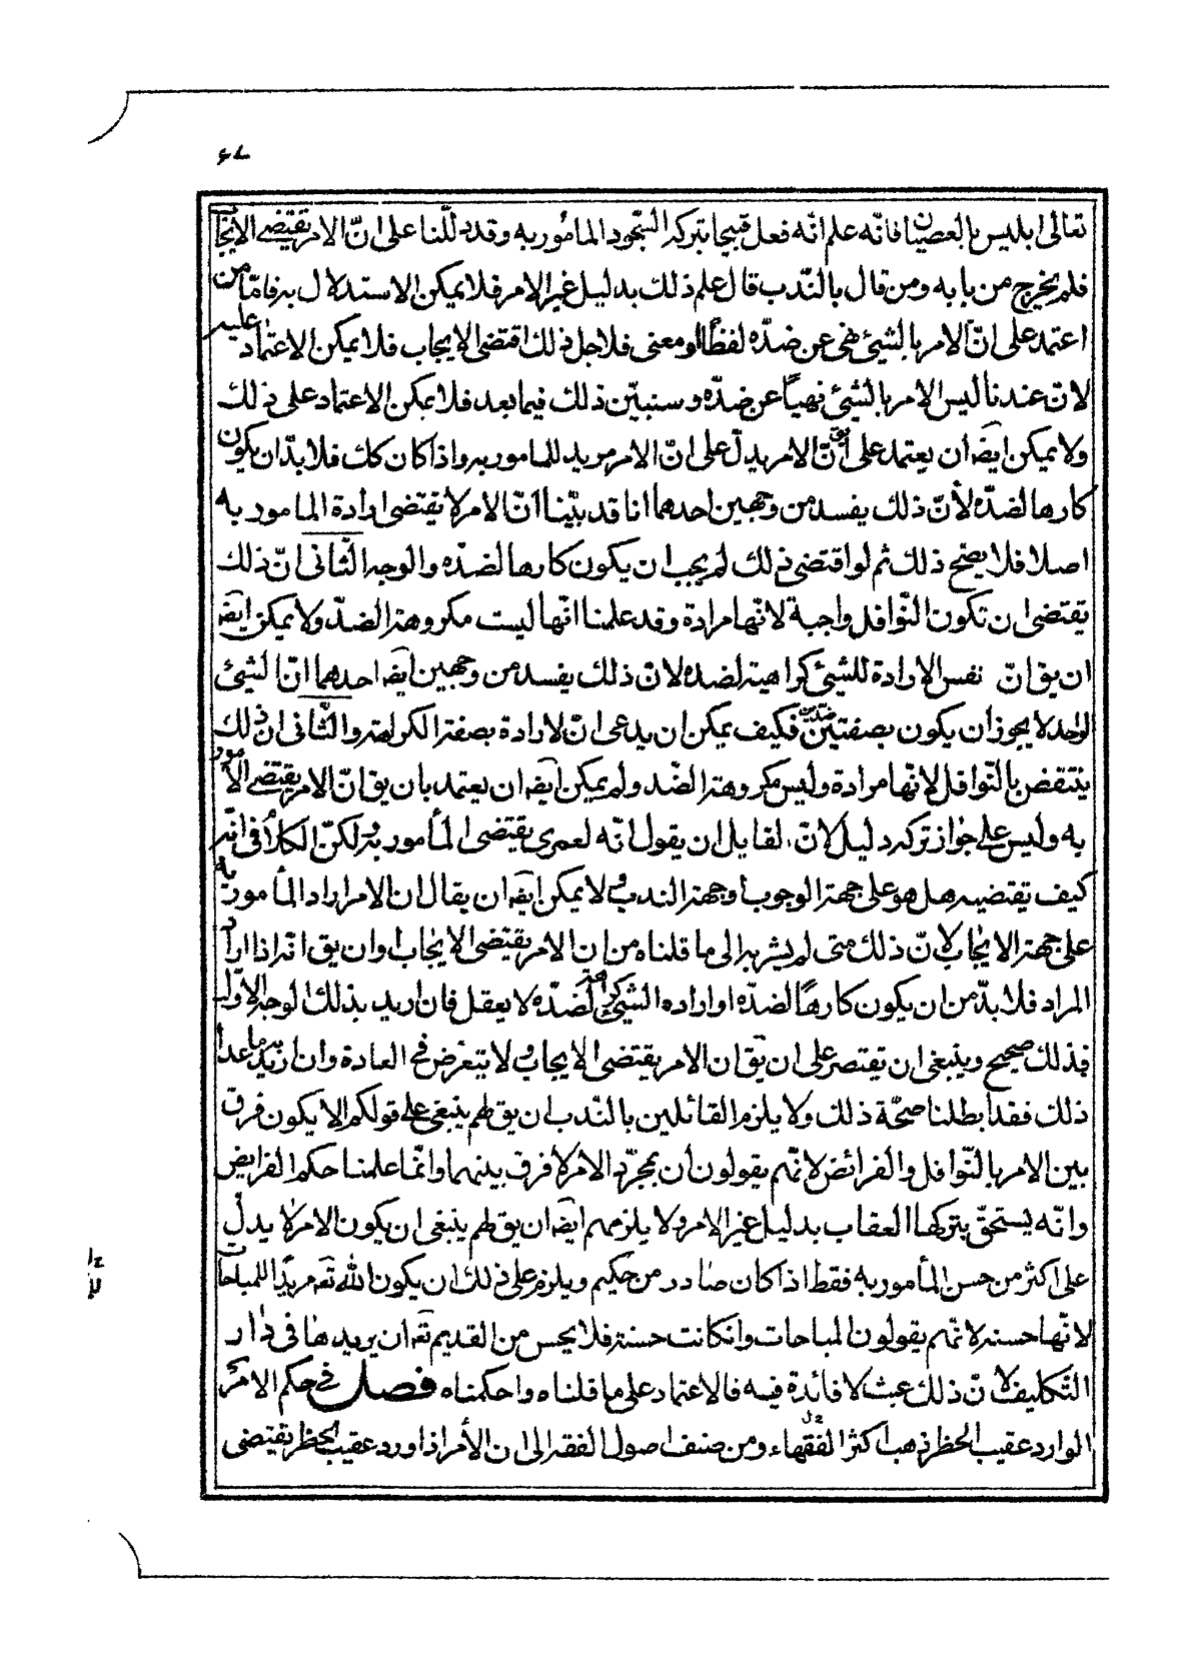 تعالى ابليس بالعصيان فانّه علم انّه فعل قبيحا بتركه السّجود المأمور به وقد دلّلنا على انّ الامر يقتضى الايجاب
فلم يخرج من بابه ومن قال بالنّدب قال علم ذلك بدليل غير الامر فلا يمكن الاستدلال به فامّا من
اعتمد على انّ الامر بالشيئ نهى عن ضدّه لفظًا او معنى فلاجل ذلك اقتضى الايجاب فلا يمكن الاعتماد عليه
لانّ عندنا ليس الامر بالشيئ نهيًا عن ضدّه وسنبيّن ذلك فيما بعد فلا يمكن الاعتماد على ذلك
ولا يمكن ايضَ ان يعتمد على ان يق انّ الامر يدلّ على انّ الامر مريد للمامور به واذا كان كك فلا بدّ ان يكون
كارها لضدّه لأنّ ذلك يفسد من وجهين احدهما انا قد بيّنا انّ الامر لا يقتضى ارادة المامور به
اصلا فلا يصّح ذلك ثم لو اقتضى ذلك لم يجب ان يكون كارها لضدّه والوجه الثّانى انّ ذلك
يقتضى ان تكون النّوافل واجبة لانّها مرادة وقد علمنا انّها ليست مكروهة الضدّ ولا يمكن ايضَ
ان يق انّ نفس الارادة للشيئ كراهية لضده لانّ ذلك يفسد من وجهين ايضَ احدهما انّ الشيئ
الواحد لا يجوز ان يكون بصفتين ضدّين فكيف يمكن ان يدعى انّ لارادة بصفة الكراهة والثّانى ان ذلك
ينتقض بالنّوافل لانّها مرادة وليس مكروهة الضّد ولم يمكن ايضَ ان يعتمد بان يق انّ الامر يقتضى المأمور
به وليس على جواز تركه دليل لانّ لقايل ان يقول انّه لعمرى يقتضى المأمور به لكنّ الكلام فى انّه
كيف يقتضيه هل هو على جهة الوجوب او جهة الندب ولا يمكن ايضَ ان يقال ان الامر اراد المأمور به
على جهة الايجاب لانّ ذلك متى لم يشر به الى ما قلناه من ان الامر يقتضى الايجاب او ان يق انّه اذا اراد
المراد فلا بدّ من ان يكون كارهًا لضدّه او اراده الشيئ كراهة لضدّه لا يعقل فان اريد بذلك الوجه الاوّل
فذلك صحيح وينبغى ان يقتصر على ان يق ان الامر يقتضى الايجاب ولا يتعرّض فى العادة وان اريد به ما عدا
ذلك فقد ابطلنا صحّة ذلك ولا يلزم القائلين بالنّدب ان يق لهم ينبغى على قولكم الا يكون فرق
بين الامر بالنّوافل والفرائض لانّهم يقولون ان بمجرّد الامر لا فرق بينهما وانّما علمنا حكم الفرايض
وانّه يستحقّ بتركها العقاب بدليل غير الامر ولا يلزمهم ايضَ ان يق لهم ينبغى ان يكون الامر لا يدل
على اكثر من حسن المأمور به فقط اذا كان صادر من حكيم ويلزم على ذلك ان يكون الله تعَ مريدًا للمباحات
لانّها حسنة لانّهم يقولون المباحات وانكانت حسنة فلا يحسن من القديم تعَ ان يريدها فى دار
التّكليف لانّ ذلك عبث لا فائدة فيه فالاعتماد على ما قلناه واحكمناه فصل فى حكم الامر
الوارد عقيب الحظر ذهب اكثر الفقهاء ومن صنف اصول الفقه الى ان الأمر اذا ورد عقيب الحظر يقتضى